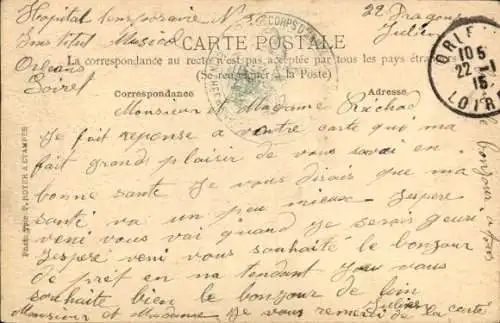 Hopital temporaire N 36
Institut Musical
Orleans
Loiret
22 Dragons
Julien
CORPS D'ARMÉE
CARTE POSTALE
La correspondance au recto n'est pas acceptée par tous les pays étrangers
(Se renseigner à la Poste)
ORLÉ
10 5
22 -1
15
LOIR
Correspondance
Adresse
Monsieur et Madame Réchad
Je fait reponse a vontre carte qui ma
fait grands plaisir de vous savoi en
bonne sante Je vous dirais que ma
santé va un peu mieux Jespere
veni vous vai quand je serais gueri
Jespere veni vous souhaité le bonjour
de prét en na tendant Je vous
souhaite bien le bonjour de loin
Julien
Monsieur et Madame Je vous remerci de la carte
le bonjour a
Phototypie ROYER à ETAMPES